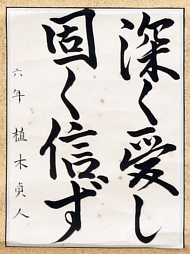 深く愛し
固く信ず
六年 植木貞人